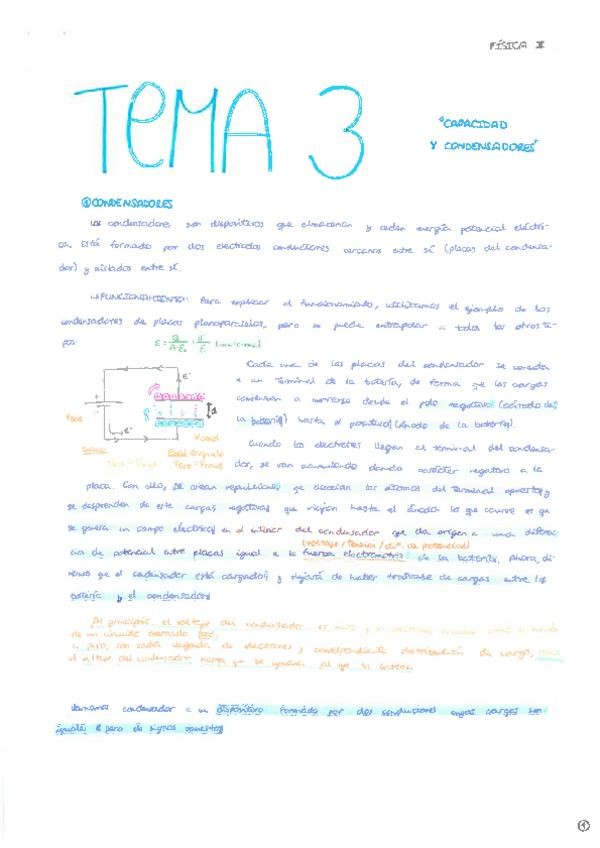 FÍSICA II
TEMA 3
"CAPACIDAD
Y CONDENSADORES"
① CONDENSADORES
Los condensadores son dispositivos que almacenan y ceden energía potencial eléctri-
ca. Está formado por dos electrodos conductores cercanos entre sí (placas del condensa-
dor) y aislados entre sí.
↳ FUNCIONAMIENTO: Para explicar el funcionamiento, utilizamos el ejemplo de los
condensadores de placas planoparalelas, pero se puede extrapolar a todos los otros ti-
pos
Cada una de las placas del condensador se conecta
a un terminal de la batería, de forma que las cargas
comienzan a moverse desde el polo negativo (cátodo de
la batería) hasta el positivo (ánodo de la batería).
Cuando los electrones llegan al terminal del condensa-
dor, se van acumulando dando carácter negativo a la
placa. Con ello, se crean repulsiones
se desprenden de este cargas negativas que viajan hasta el ánodo lo que ocurre es que
se genera un campo eléctrico en el interior del condensador que da origen a una diferen-
(voltaje / tensión / dif. de potencial)
cia de potencial entre placas igual a la fuerza electromotriz de la batería. Ahora, di-
remos que el condensador está cargado y dejará de haber trasvase de cargas entre la
batería y el condensador
Al principio, el voltaje del condensador es nulo y
de un circuito cerrado
con cada llegada de electrones y consiguiente distribución de carga,
el voltaje del condensador hasta que se iguala al de la batería
Llamamos condensador a un dispositivo formado por dos conductores cuyas cargas son
iguales pero de signos opuestos
①